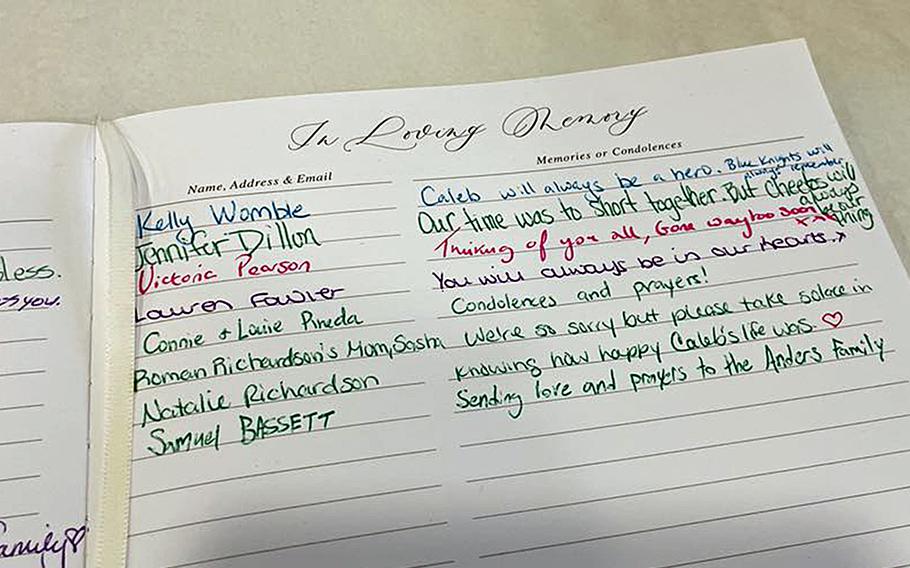 In Loving Memory
Name, Address & Email
Memories or Condolences
Kelly Womble
Caleb will always be a hero. Blue Knights will always remember
Jennifer Dillon
Our time was to short together. But cheers will always be our thing
Victoria Pearson
Thinking of you all, Gone way too soon xx
Lauren Fowler
You will always be in our hearts. x
Connie + Louie Pineda
Condolences and prayers!
Roman Richardson's Mom, Sasha
We're so sorry but please take solace in
Natalie Richardson
knowing how happy Caleb's life was. ♡
Samuel BASSETT
Sending love and prayers to the Anders Family
less.
you.
Family♡